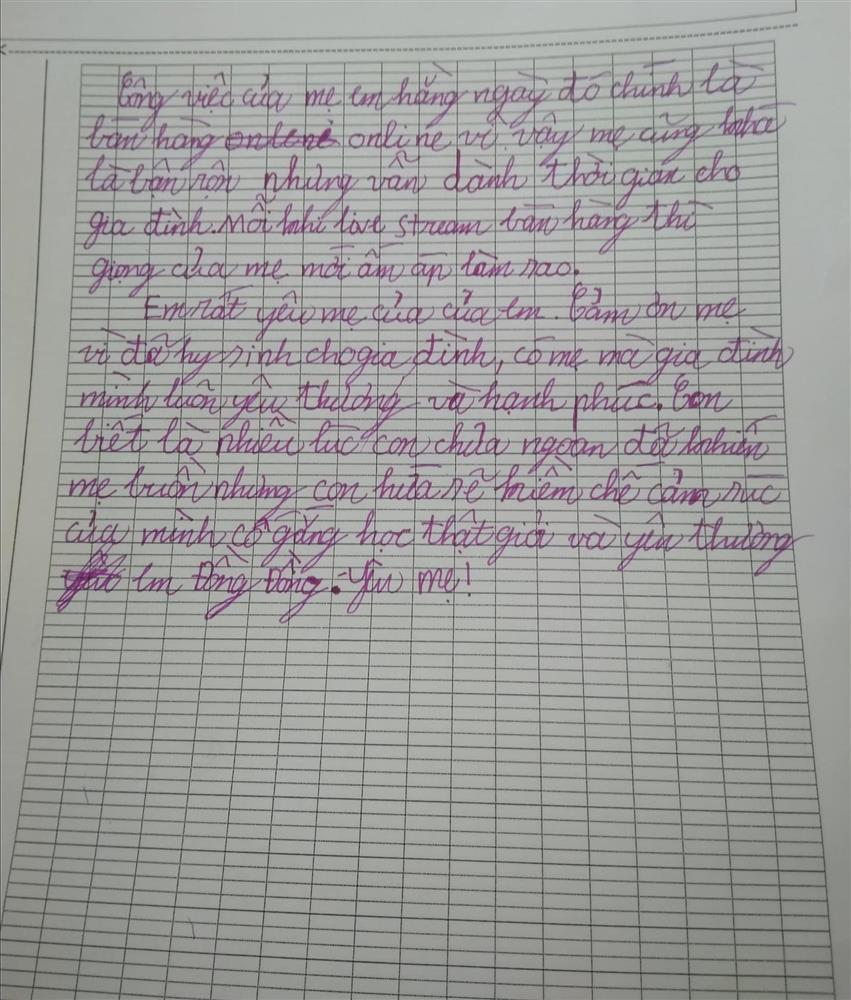 Công việc của mẹ em hằng ngày đó chính là
bán hàng online vì vậy mẹ cũng khá
là bận rộn nhưng vẫn dành thời gian cho
gia đình. Mỗi khi live stream bán hàng thì
giọng của mẹ mới ấm áp làm sao.
Em rất yêu mẹ của của em. Cảm ơn mẹ
vì đã hy sinh cho gia đình, có mẹ mà gia đình
mình luôn yêu thương và hạnh phúc. Con
biết là nhiều lúc con chưa ngoan đã khiến
mẹ buồn nhưng con hứa sẽ kiềm chế cảm xúc
của mình cố gắng học thật giỏi và yêu thương
em Đồng Đồng. Yêu mẹ!